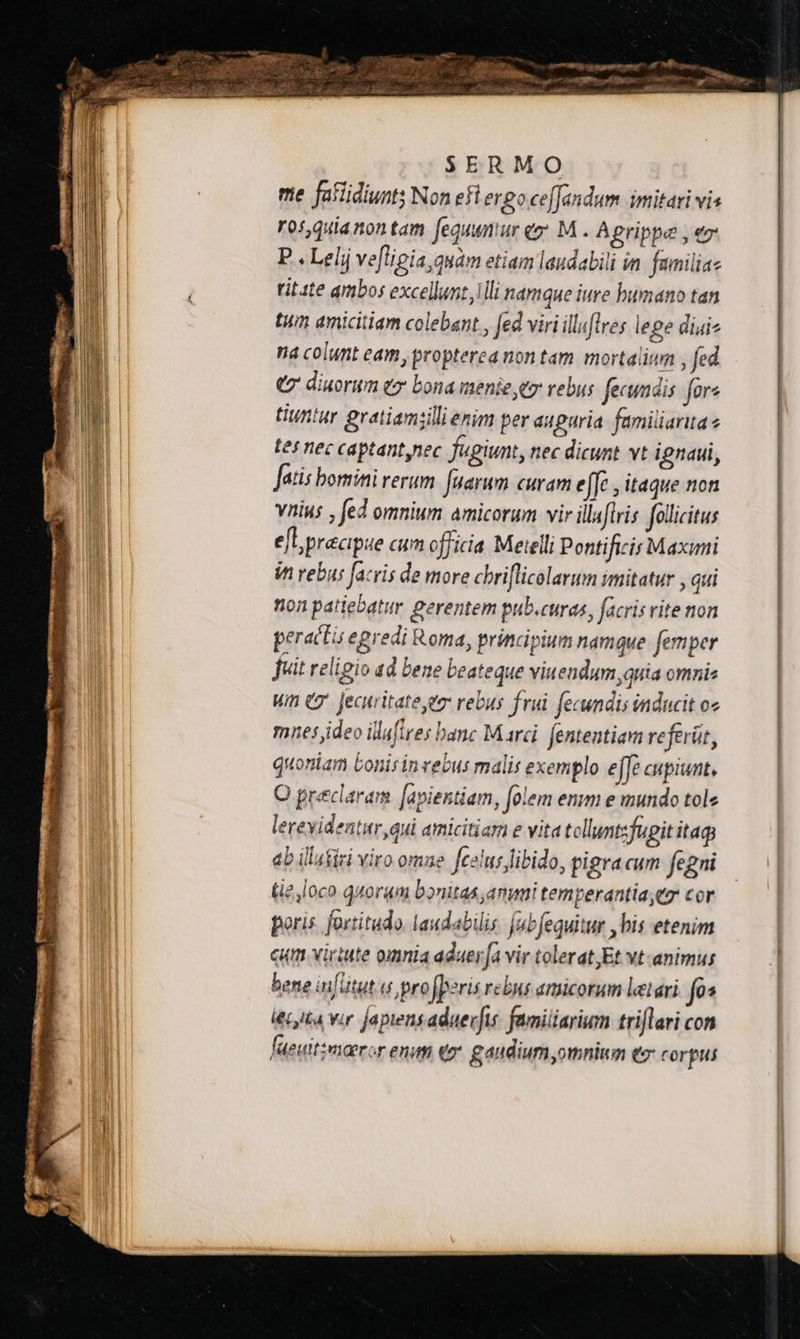 SERMO
me fastidiunt; Non est ergo cessandum imitari vi=
ros, quia non tam sequuntur & M. Agrippæ, &
P. Lelij vestigia, quàm etiam laudabili in familia=
ritate ambos excellunt, illi namque iure humano tan
tum amicitiam colebant, sed viri illustres lege diui=
na colunt eam, propterea non tam mortalium, sed
& diuorum & bona mente, & rebus secundis for=
tiuntur gratiam; illi enim per auguria familiarita=
tes nec captant, nec fugiunt, nec dicunt vt ignaui,
fatis homini rerum suarum curam esse, itaque non
vnius, sed omnium amicorum vir illustris sollicitus
est, præcipue cum officia Metelli Pontificis Maximi
in rebus sacris de more christicolarum imitatur, qui
non patiebatur gerentem pub. curas, sacris rite non
peractis egredi Roma, principium namque semper
fuit religio ad bene beateque viuendum, quia omni=
um & securitate, & rebus frui secundis inducit o=
mnes, ideo illustres hanc Marci sententiam referūt,
quoniam bonis in rebus malis exemplo esse cupiunt.
O præclaram sapientiam, solem enim e mundo tol=
lere videntur, qui amicitiam e vita tollunt: fugit itaq;
ab illustri viro omne scelus, libido, pigra cum segni
tie, loco quorum bonitas, animi temperantia, & cor
poris fortitudo laudabilis subsequitur, his etenim
cum virtute omnia aduersa vir tolerat, Et vt animus
bene institutus, prosperis rebus amicorum lætari so=
let, ita vir sapiens aduersis familiarium tristari con
sueuit: mœror enim & gaudium, omnium & corpus